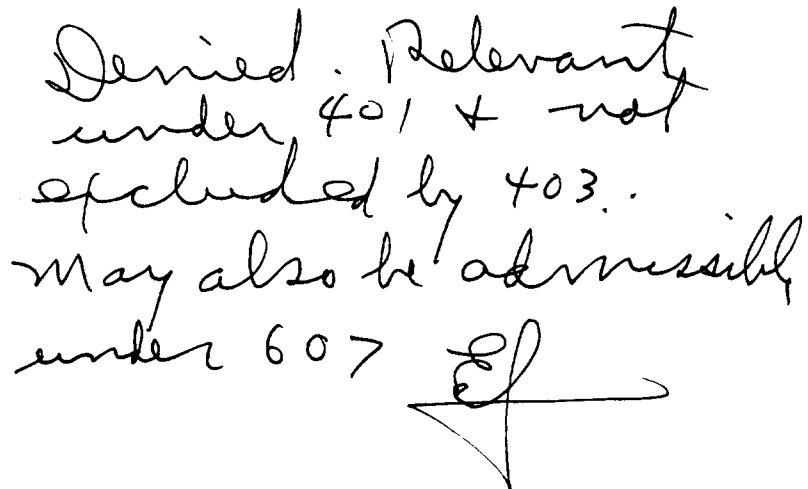 Denied. Relevant
under 401 + not
excluded by 403.
May also be admissible
under 607